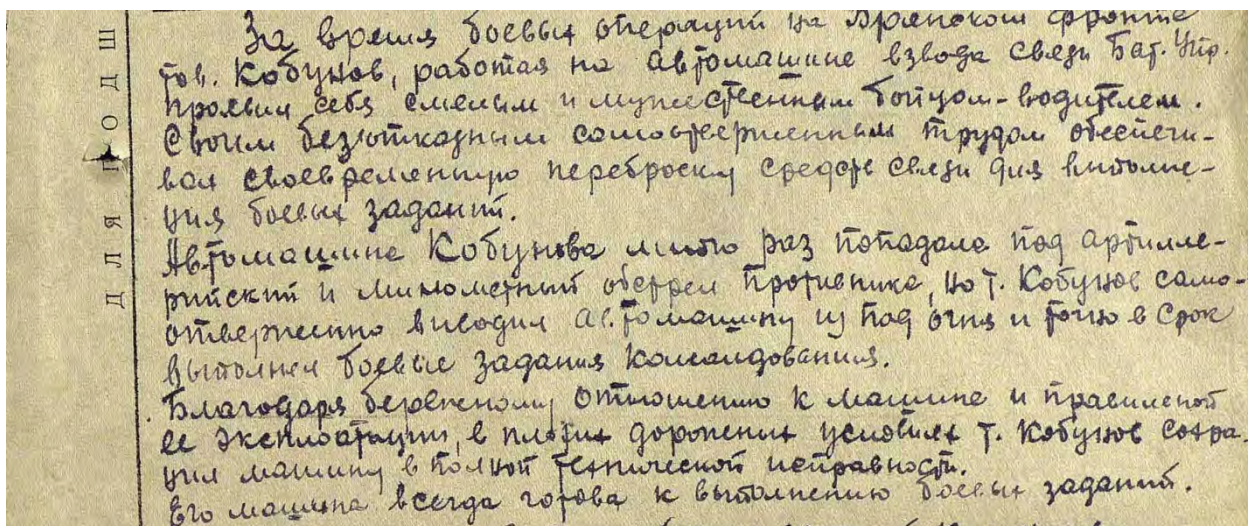 За время боевых операций на Брянском фронте
тов. Кобунов, работая на автомашине взвода связи Бат. Упр.
проявил себя смелым и мужественным бойцом-водителем.
Своим безотказным самоотверженным трудом обеспечи-
вал своевременную переброску средств связи для выполне-
ния боевых заданий.
Автомашина Кобунова много раз попадала под артилле-
рийский и минометный обстрел противника, но т. Кобунов само-
отверженно выводил автомашину из под огня и точно в срок
выполнял боевые задания командования.
Благодаря бережному отношению к машине и правильной
ее эксплоатации, в плохих дорожных условиях т. Кобунов сохра-
нил машину в полной технической исправности.
Его машина всегда готова к выполнению боевых заданий.
ДЛЯ ПОДШ